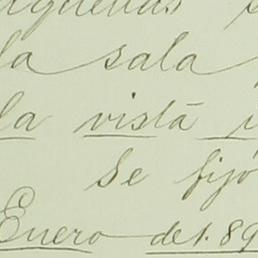 la sala
la vista
Se fijó
Enero de 1.89